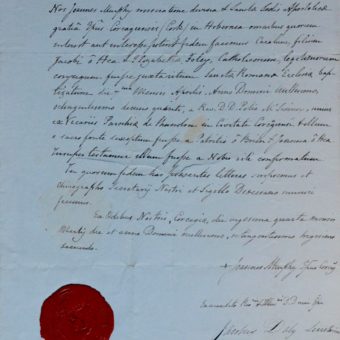 Nos Joannes Murphy miseratione divina et Sanctæ Sedis Apostolicæ
gratiâ Epũs Corcagiensis (Cork) in Hibernia omnibus quorum
interest aut interesse poterit fidem facimus Carolum filium
Jacobi O'Hea et Elizabethæ Foley, Catholicorum, legitimorum
conjugum fuisse juxta ritum Sanctæ Romanæ Ecclesiæ bap-
tizatum die Mensis Anno Domini Millesimo,
octingentesimo decimo quarto, a Rev. D. D. Petro unus
ex Vicariis Parochiæ de in Civitate Corcagiensi illum
e sacro fonte exceptum fuisse a Patritio O'Brien & Joanna O'Hea
Insuper testamur illum fuisse a Nobis rite confirmatum
In quorum fidem has præsentes litteras
chirographo Secretarii Nostri et Sigillo Diœcesano muniri
fecimus.
Ex Ædibus Nostris, Corcagiæ, die vigesima quarta mensis
et anno Domini millesimo, octingentesimo trigesimo
secundo.
Joannes Murphy Epũs
De mandato
Jacobus Daly